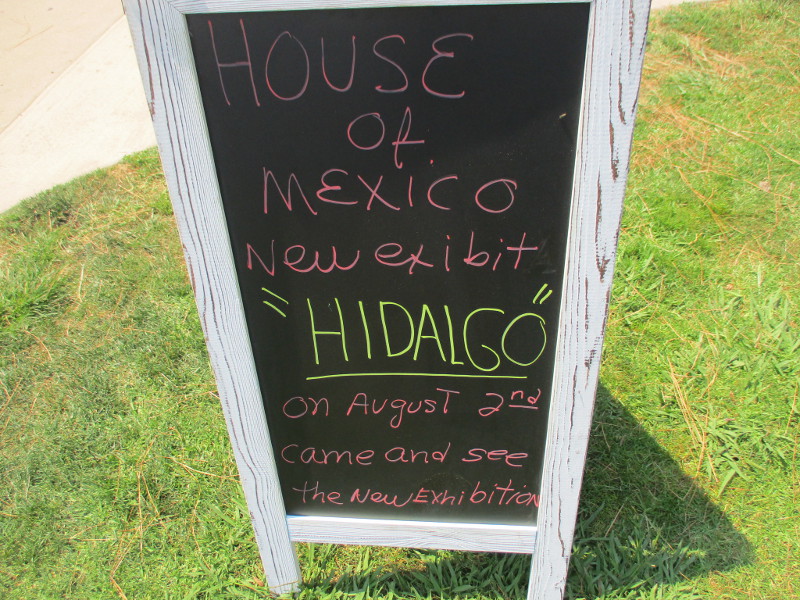 HOUSE
Of
MEXICO
New exibit
"HIDALGO"
on August 2nd
came and see
the New Exhibition